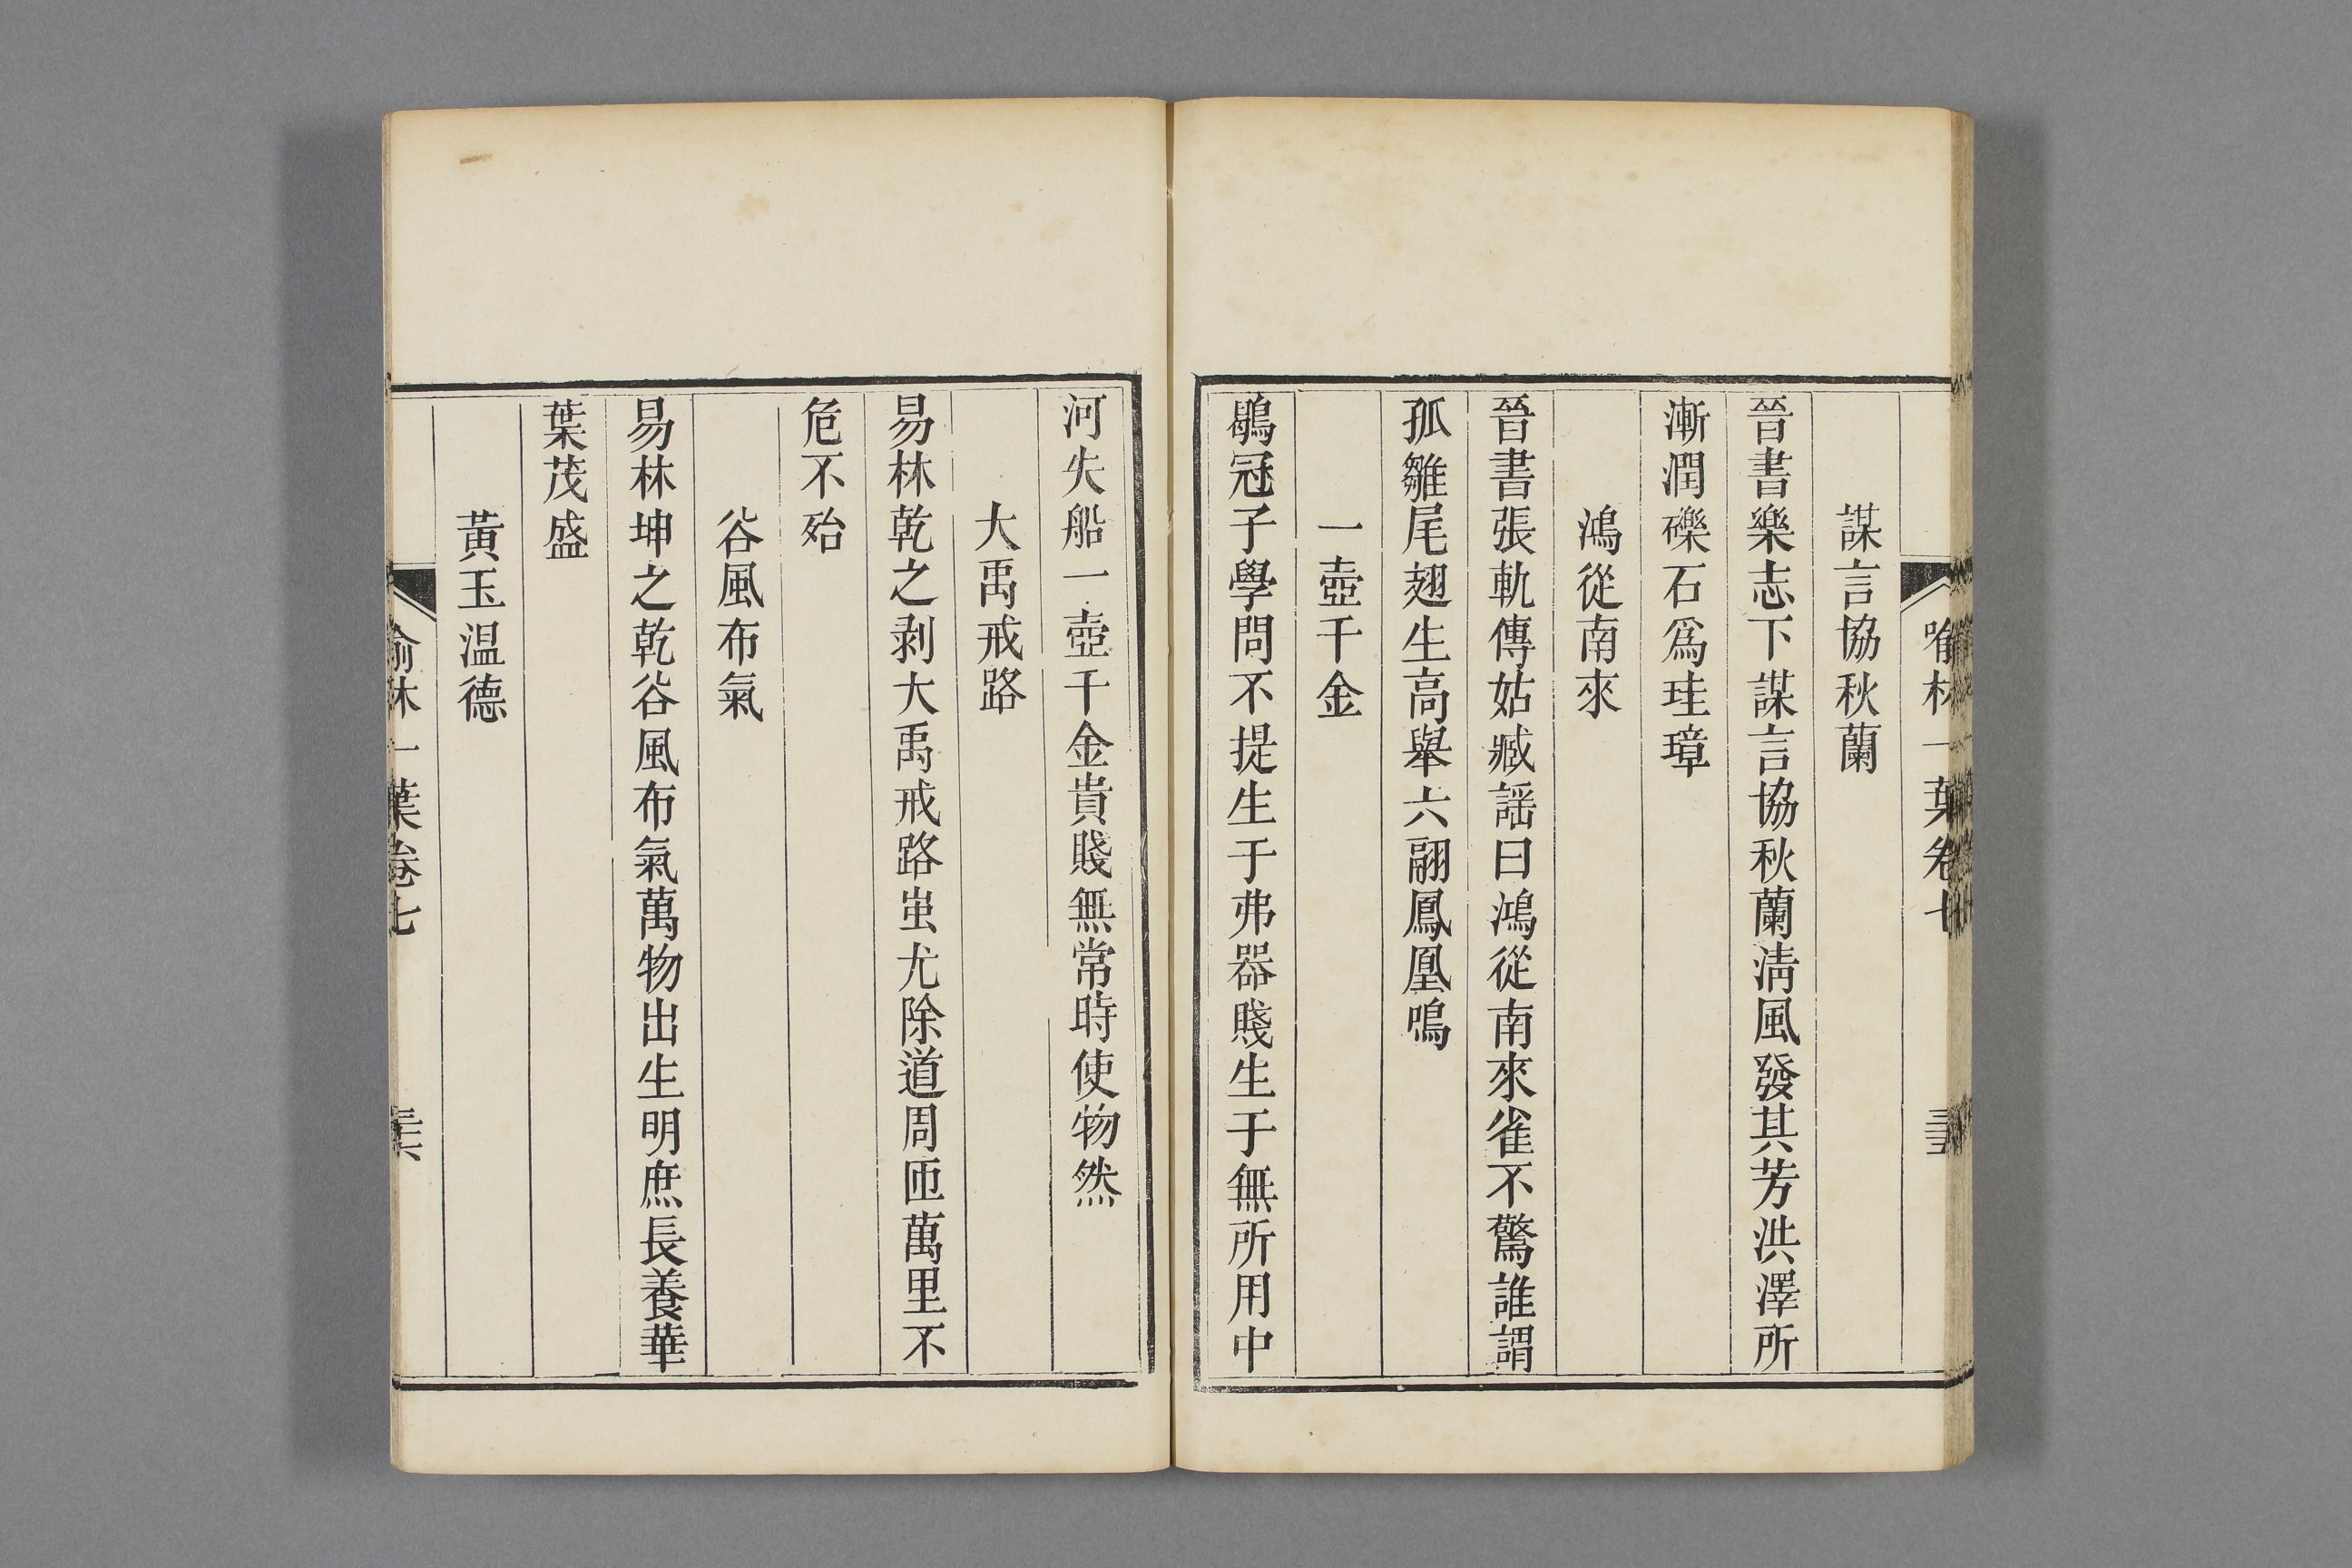 喻林一葉卷七
謀言協秋蘭
晉書樂志下謀言協秋蘭淸風發其芳洪澤所
漸潤礫石爲珪璋
鴻從南來
晉書張軌傳姑臧謡曰鴻從南來雀不驚誰謂
孤雛尾翅生高舉六翮鳳凰鳴
一壺千金
鶡冠子學問不提生于弗器賤生于無所用中
河失船一壺千金貴賤無常時使物然
大禹戒路
易林乾之剥大禹戒路蚩尤除道周匝萬里不
危不殆
谷風布氣
易林坤之乾谷風布氣萬物出生明庶長養華
葉茂盛
黃玉温德
喻林一葉卷七